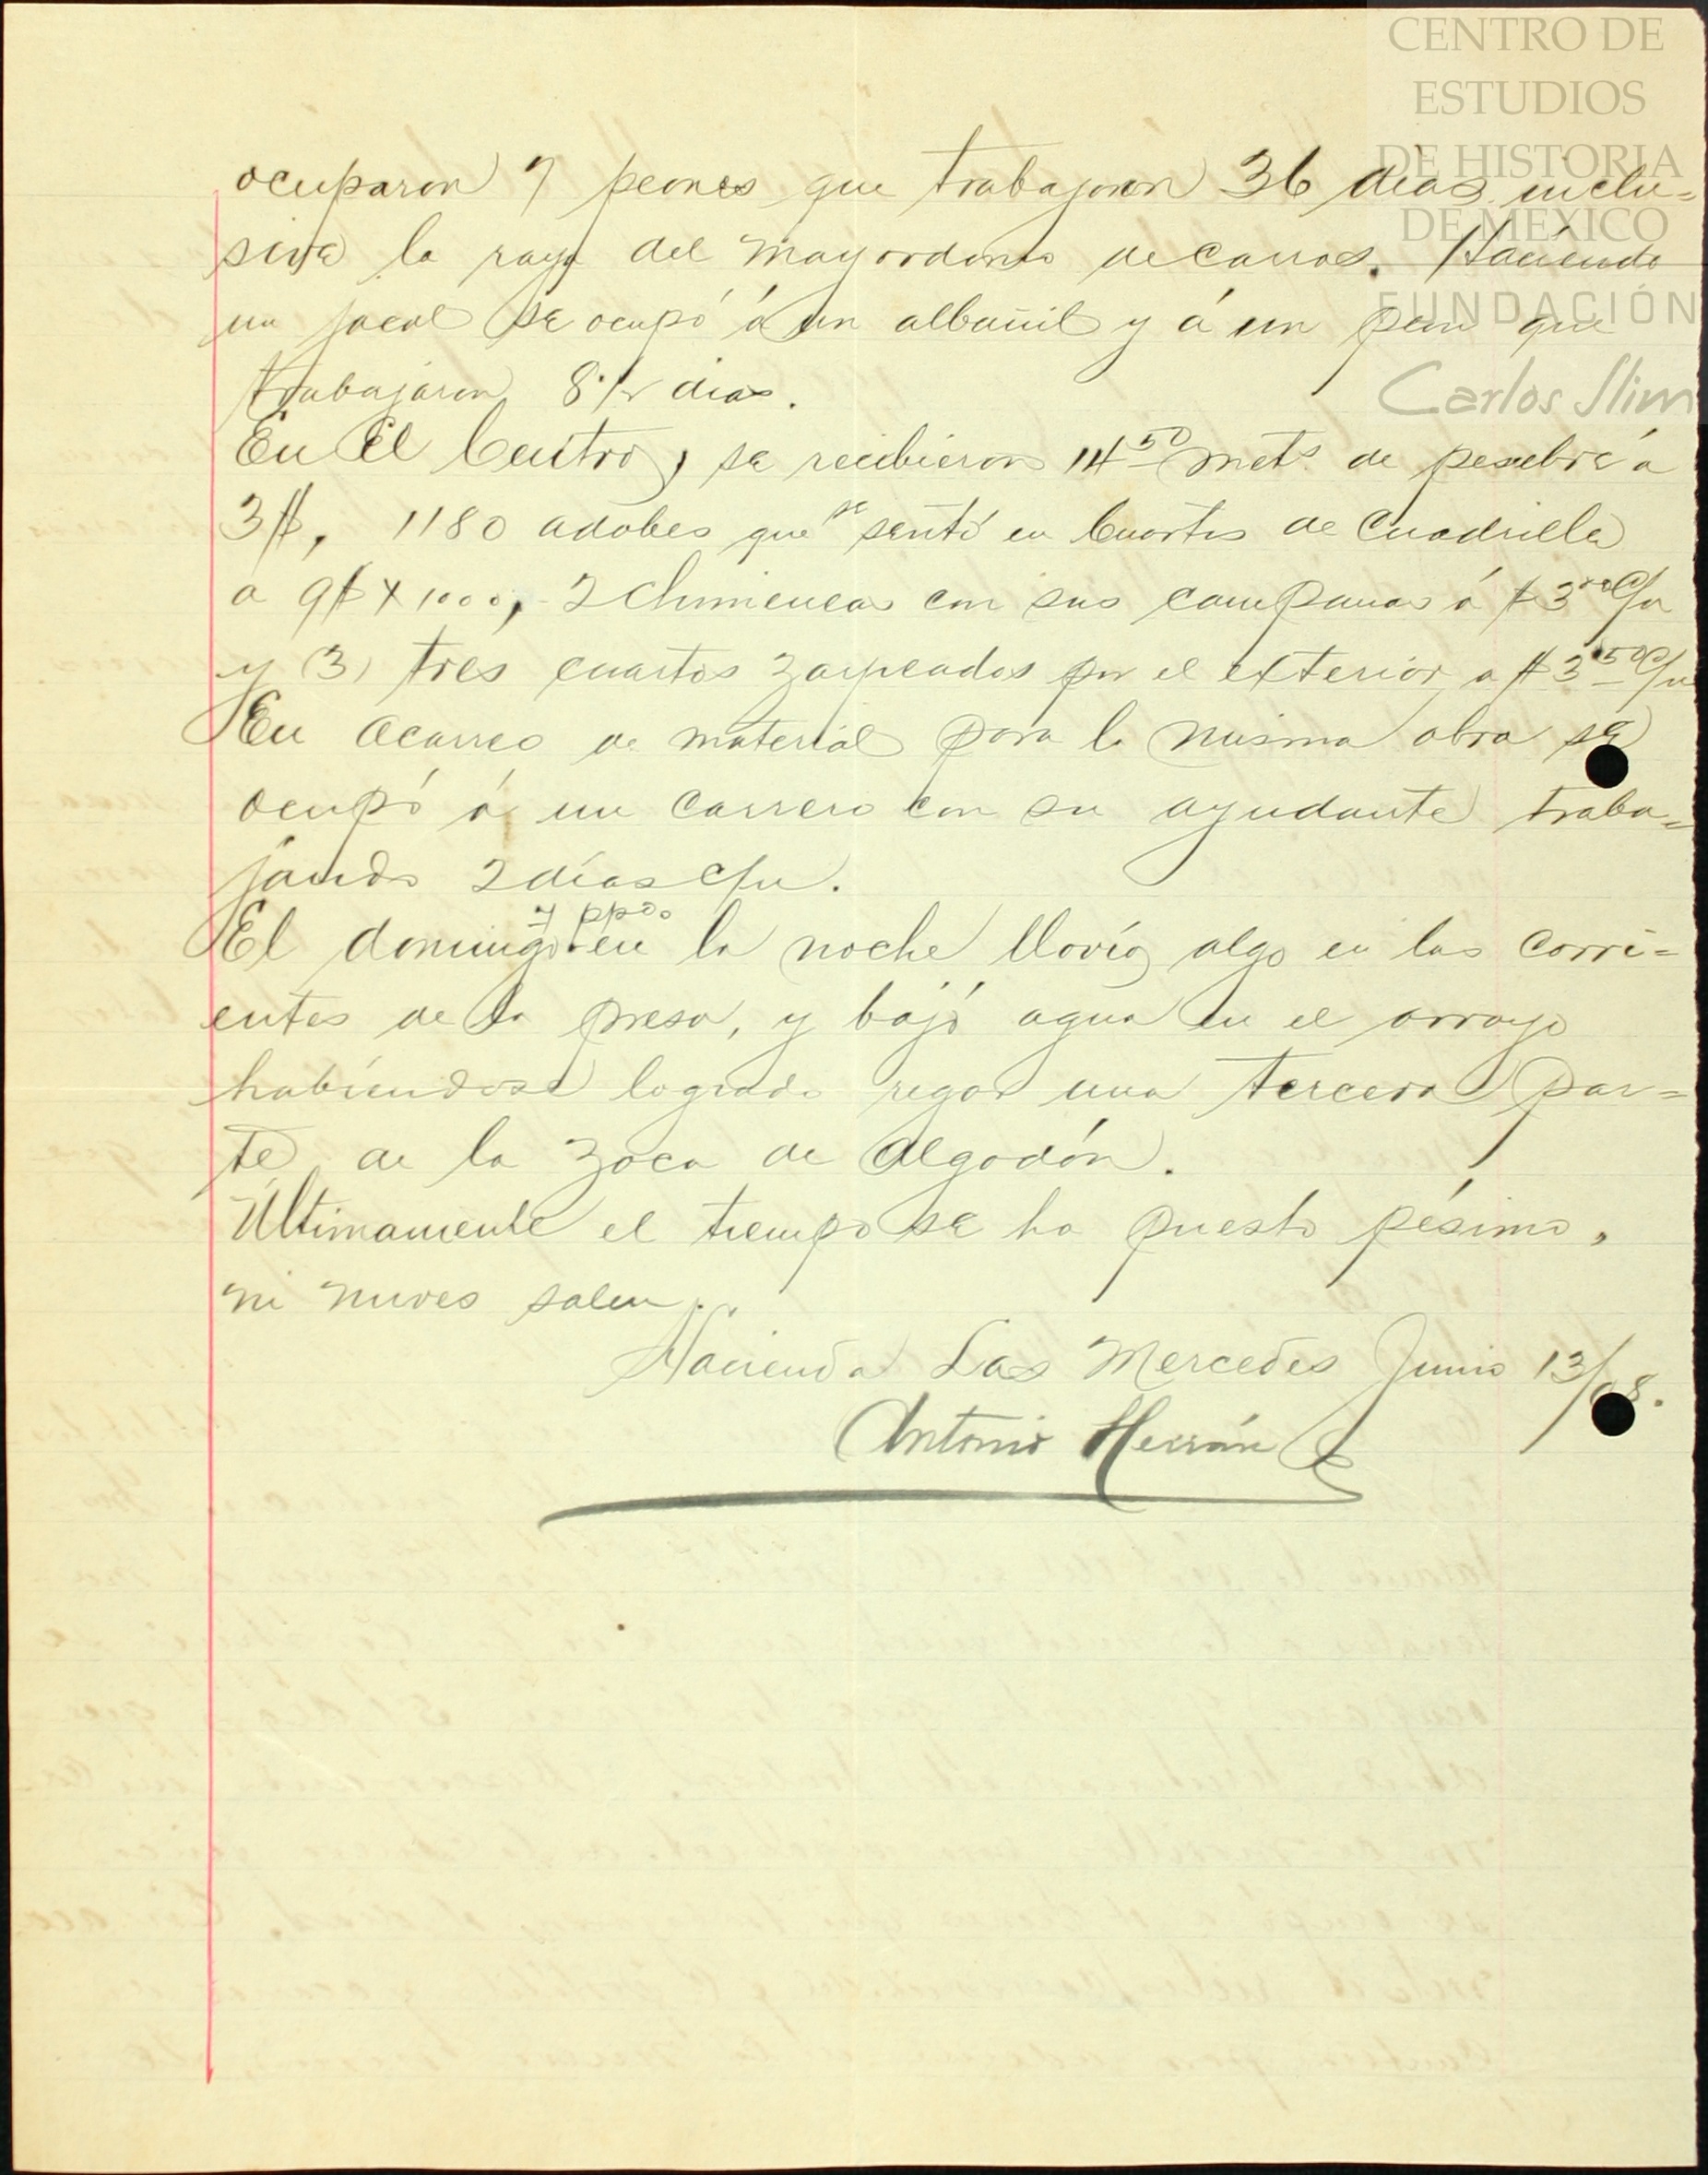 CENTRO DE
ESTUDIOS
DE HISTORIA
DE MÉXICO
FUNDACIÓN
Carlos Slim
ocuparon 7 peones que trabajaron 36 dias inclu=
sive la raya del mayordomo de carros. Haciendo
un jacal se ocupó á un albañil y á un peon que
trabajaron 8 1/2 dias.
En El Centro, se recibieron 14 50 mets. de pesebre a
3$, 1180 adobes que se sentó en Cuartos de Cuadrilla
a 9$ X 1000, 2 Chimeneas con sus campanas á $3 00 c/u
y (3) tres cuartos zarpeados por el exterior a $3 50 c/u
En acarreo de material para la misma obra se
ocupó á un carrero con su ayudante traba=
jando 2 días c/u.
El domingo 7 ppdo. en la noche llovió algo en las corri=
entes de la presa, y bajó agua en el arroyo
habiendose logrado regar una tercera par=
te de la zoca de algodón.
Ultimamente el tiempo se ha puesto pésimo,
ni nuves salen.
Hacienda Las Mercedes Junio 13/08.
Antonio Herrán